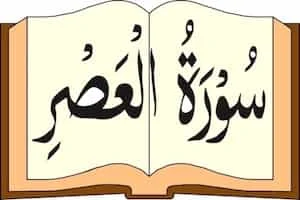 سُوْرَةُ الْعَصْرِ